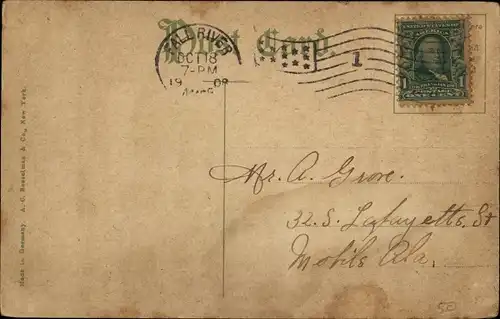 Post Card
FALL RIVER
OCT 18
7-PM
1909
MASS
1
Mr. A. Grove.
32. S. Lafayette. St
Mobile Ala.
50
Made in Germany. A. C. Bosselman & Co., New York.